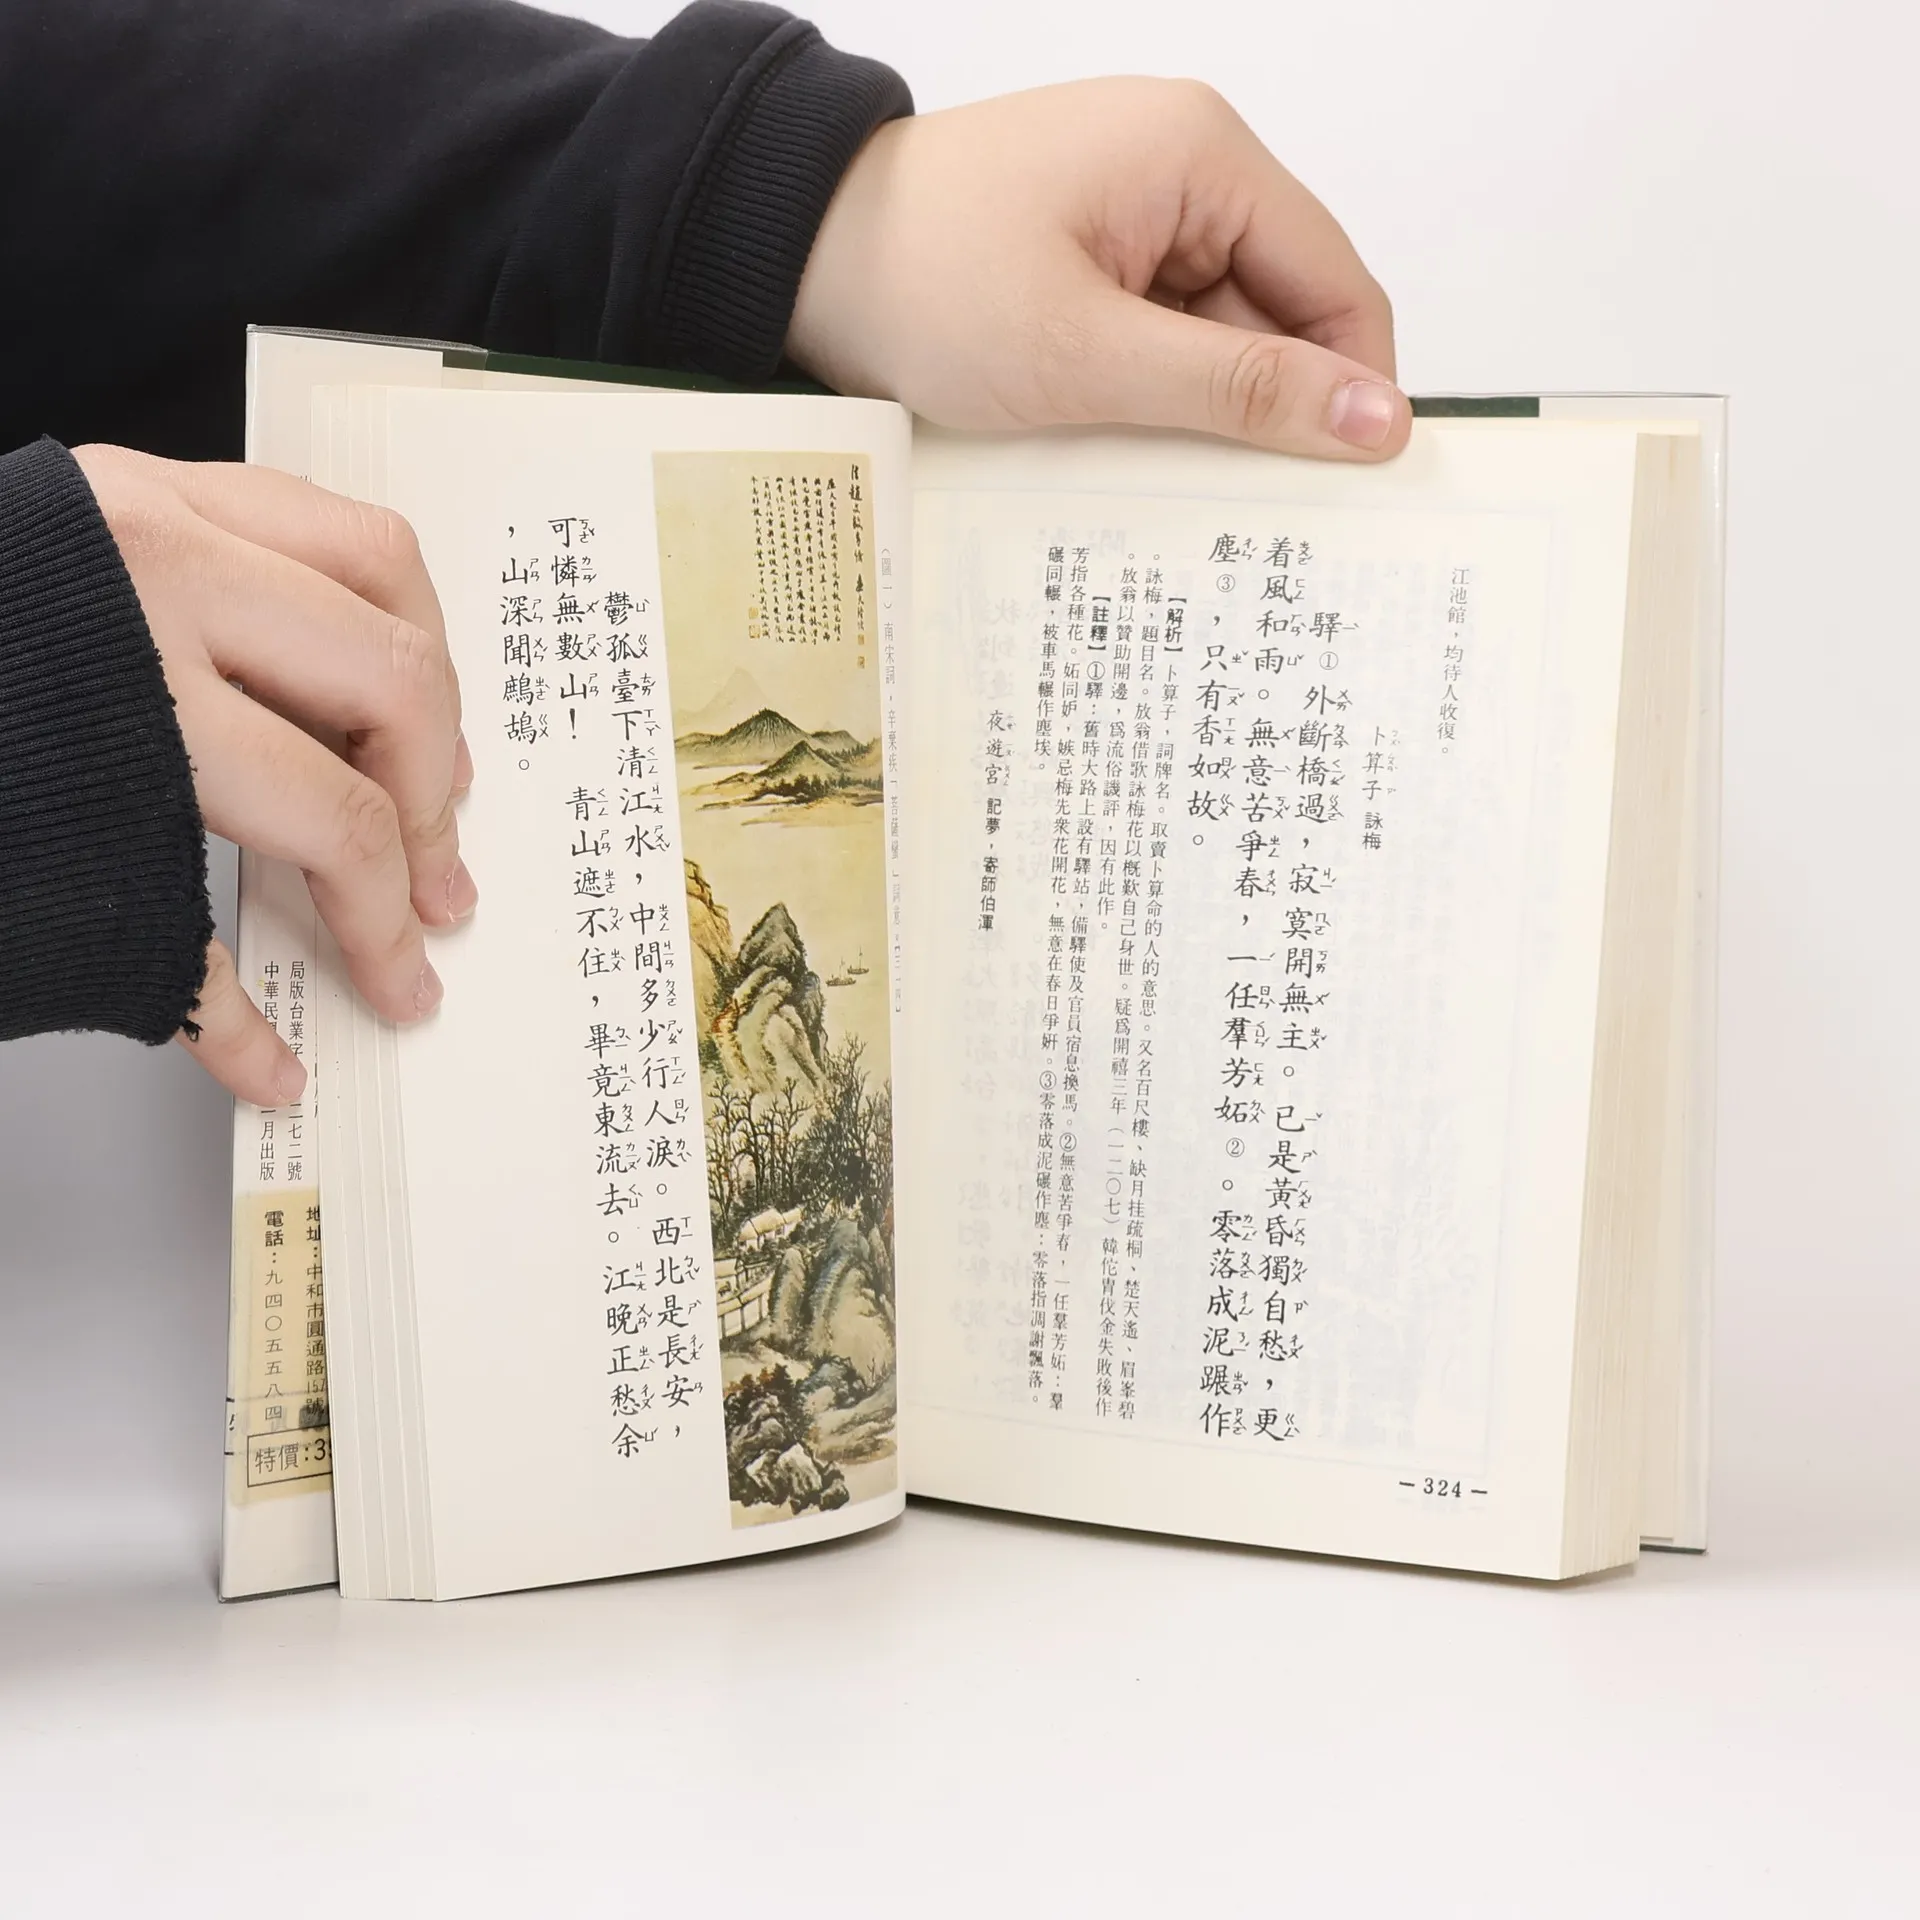 江池館，均待人收復。
卜算子 詠梅
驛①外斷橋過，寂寞開無主。已是黃昏獨自愁，更
着風和雨。無意苦爭春，一任羣芳妬②。零落成泥蹍作
塵③，只有香如故。
【解析】卜算子，詞牌名。取賣卜算命的人的意思。又名百尺樓、缺月挂疏桐、楚天遙、眉峯碧
。詠梅，題目名。放翁借歌詠梅花以概歎自己身世。疑爲開禧三年（一二〇七）韓侂冑伐金失敗後作
。放翁以贊助開邊，爲流俗譏評，因有此作。
【註釋】①驛：舊時大路上設有驛站，備驛使及官員宿息換馬。②無意苦爭春，一任羣芳妬：羣
芳指各種花。妬同妒，嫉忌梅先衆花開花，無意在春日爭妍。③零落成泥碾作塵：零落指凋謝飄落。
碾同輾，被車馬輾作塵埃。
夜遊宮 記夢，寄師伯渾
— 324 —
鬱孤臺下清江水，中間多少行人淚。西北是長安，
可憐無數山！ 青山遮不住，畢竟東流去。江晚正愁余
，山深聞鷓鴣。
地址：中和市圓通路157號
電話：九四〇五五八四
特價：3
局版台業字 二七二號
中華民國 月出版